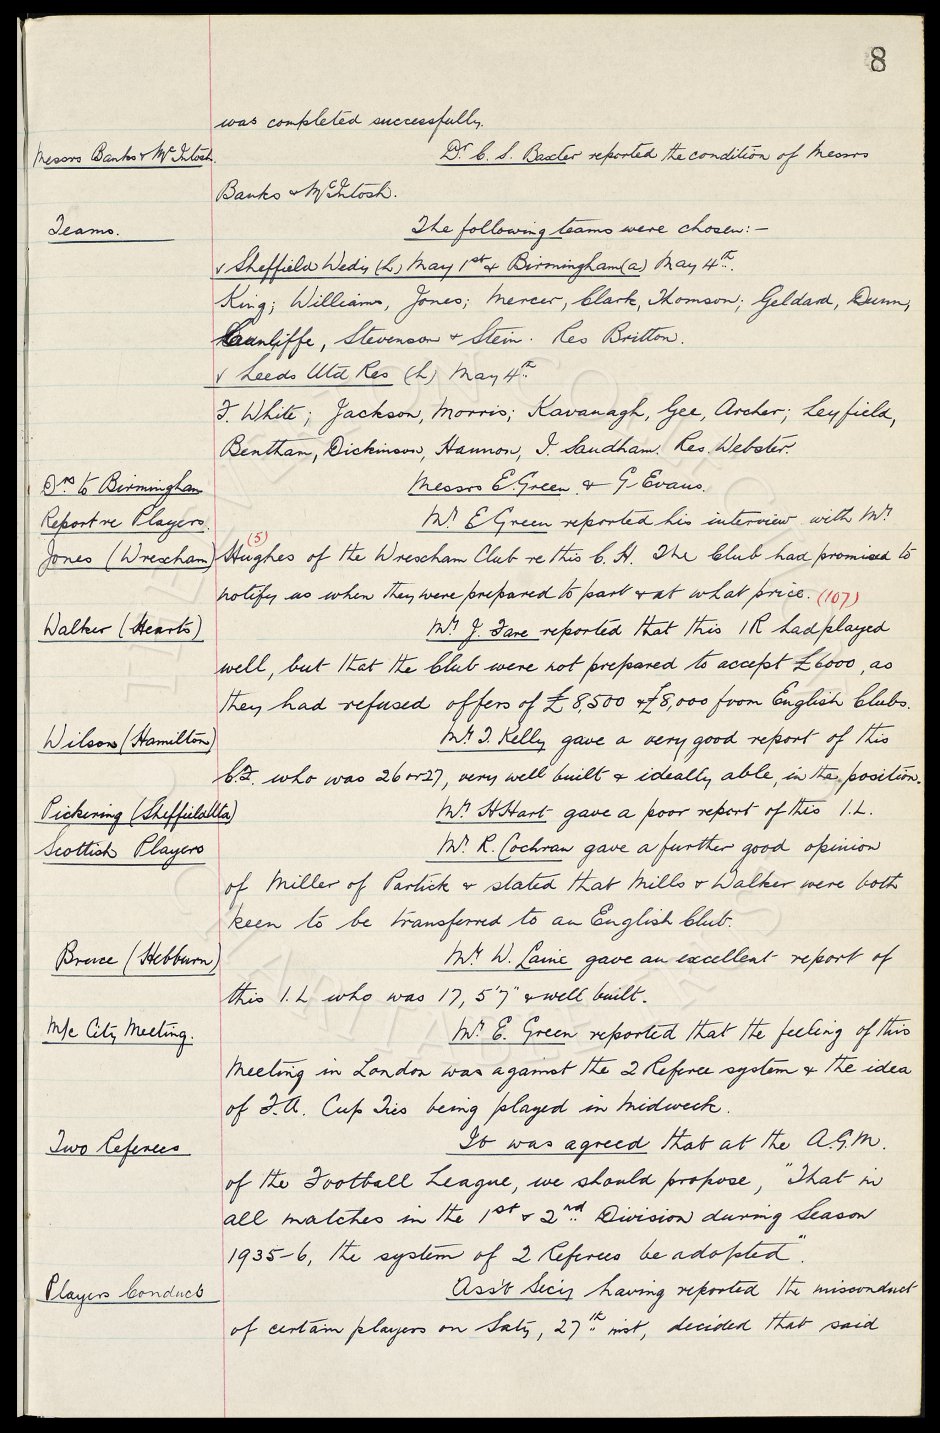 8
was completed successfully.
Messrs Banks & McIntosh. Dr. C. S. Baxter reported the condition of Messrs
Banks & McIntosh.
Teams. The following teams were chosen:-
v Sheffield Wedy (h) May 1st & Birmingham (a) May 4th.
King; Williams, Jones; Mercer, Clark, Thomson; Geldard, Dunn,
Cunliffe, Stevenson & Stein. Res Britton.
v Leeds Utd Res (h) May 4th
F. White; Jackson, Morris; Kavanagh, Gee, Archer; Leyfield,
Bentham, Dickinson, Hannon, J. Sandham. Res. Webster.
Drs to Birmingham Messrs E. Green & G Evans.
Report re Players. Mr E Green reported his interview with Mr
(5)
Jones (Wrexham) Hughes of the Wrexham Club re this C.H. The Club had promised to
notify us when they were prepared to part & at what price. (107)
Walker (Hearts) Mr J. Fare reported that this IR had played
well, but that the Club were not prepared to accept £6000, as
they had refused offers of £8,500 & £8,000 from English Clubs.
Wilson (Hamilton) Mr T. Kelly gave a very good report of this
C.F. who was 26 or 27, very well built & ideally able, in the position.
Pickering (Sheffield Utd) Mr H Hart gave a poor report of this I.L.
Scottish Players Mr R. Cochran gave a further good opinion
of Miller of Partick & stated that Mills & Walker were both
keen to be transferred to an English Club.
Bruce (Hebburn) Mr W. Laine gave an excellent report of
this I.L who was 17, 5'7" & well built.
M/c City Meeting. Mr E. Green reported that the feeling of this
Meeting in London was against the 2 Referee system & the idea
of F.A. Cup Ties being played in midweek.
Two Referees It was agreed that at the A.G.M.
of the Football League, we should propose, "That in
all matches in the 1st & 2nd Division during Season
1935-6, the system of 2 Referees be adopted".
Players Conduct Ass't Secy having reported the misconduct
of certain players on Saty, 27th inst, decided that said